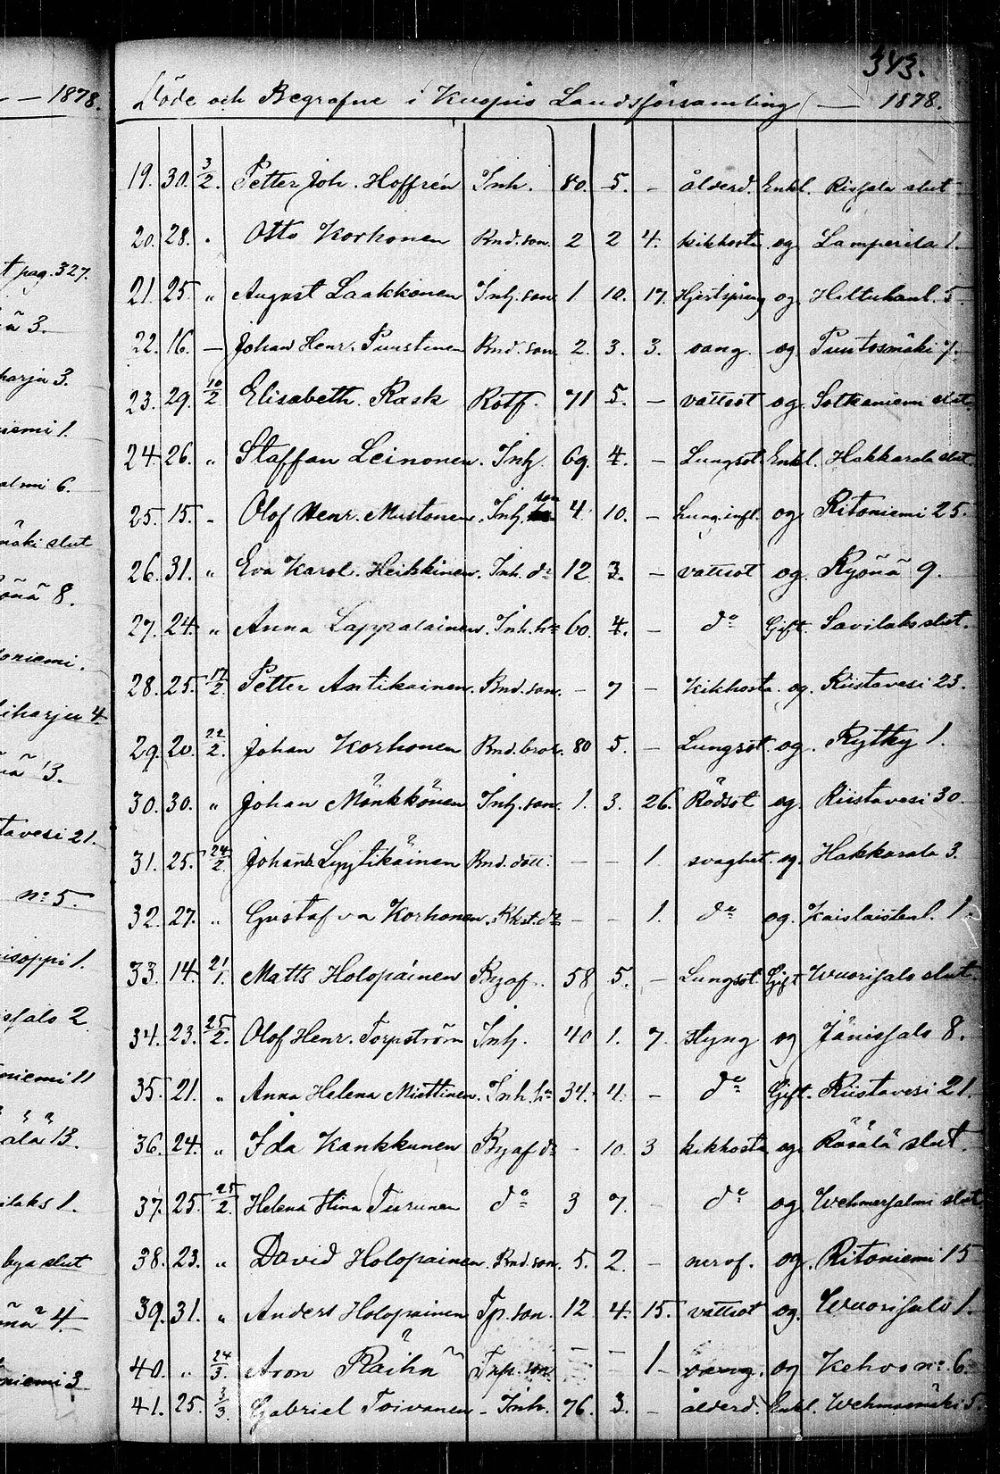 343.
— 1878.
Döde och Begrafne i Kuopio Landsförsamling — 1878.
19. 30. 3/2. Petter Joh. Hoffrén Inh. 80. 5. — ålderd. Enkl. Risfala slut
20. 28. „ Otto Korhonen Bnd. son. 2 2 4. kikhosta og Lamperila 1.
21. 25. „ August Laakkonen Inh. son. 1 10. 17. Hjertspräng og. Hiltulanl. 5
22. 16. — Johan Henr. Puustinen Bnd. son. 2. 3. 3. oang. og Puutosmäki 7.
23. 29. 10/2 Elisabeth Rask Rotf. 71 5. — vattsot og. Sotkaniemi slut
24. 26. „ Staffan Leinonen. Inh. 69. 4. — Lungsot Enkl. Hakkarala slut
25. 15. „ Olof Henr. Mustonen. Inh. son 4. 10. — Lunginfl. og Ritoniemi 25.
26. 31. „ Eva Karol. Heiskinen. Inh. dr 12 3. — vattsot og. Ryönä 9.
27. 24. „ Anna Lappalainen. Inh. hu 60. 4. — do Gift. Savilaks slut.
28. 25. 17/2. Petter Antikainen. Bnd. son. — 7 — Kikhosta og. Riistavesi 23.
29. 20. 22/2. Johan Korhonen Bnd. bror. 80 5. — Lungsot og. Rytky 1.
30. 30. „ Johan Mönkkönen Inh. son. 1. 3. 26. Rödsot og. Riistavesi 30
31. 25. 24/2. Bnd. dott. — — 1. svaghet og. Hakkarala 3.
32. 27. „ Gustafva Korhonen. dr — — 1. do og. 1.
33. 14. 21/1. Matts Holopainen 58 5. — Lungsot. Gift Wuorisalo slut
34. 23. 25/2. Olof Henr. Torpström Inh. 40 1. 7. styng og Jänissalo 8.
35. 21. „ Anna Helena Miettinen. Inh. hu 34. 4. — do Gift. Riistavesi 21.
36. 24. „ Ida Kankkunen dr — 10. 3 kikhosta og. Räsälä slut.
37. 25. 25/2. Helena Stina Turunen do 3 7. — do og Wehmersalmi slut
38. 23. „ David Holopainen. Bnd. son. 5. 2. — og. Ritoniemi 15
39. 31. „ Anders Holopainen Tp. son. 12 4. 15. vattsot og. Wuorisalo 1.
40. „ 24/3. Aron Räihä Inh. son — — 1 svag. og Kehvo no 6.
41. 25. 3/3 Gabriel Toivanen — Inh. 76. 3. — ålderd. Enkl. Wehmasmäki 5.
t pag. 327.
ä 3.
harju 3.
niemi 1.
almi 6.
mäki slut
önä 8.
oniemi.
iharju 4
ä 13.
tavesi 21.
no 5.
isoppi 1.
salo 2
niemi 11
älä 13.
ilaks 1.
bya slut
önä 4.
niemi 3